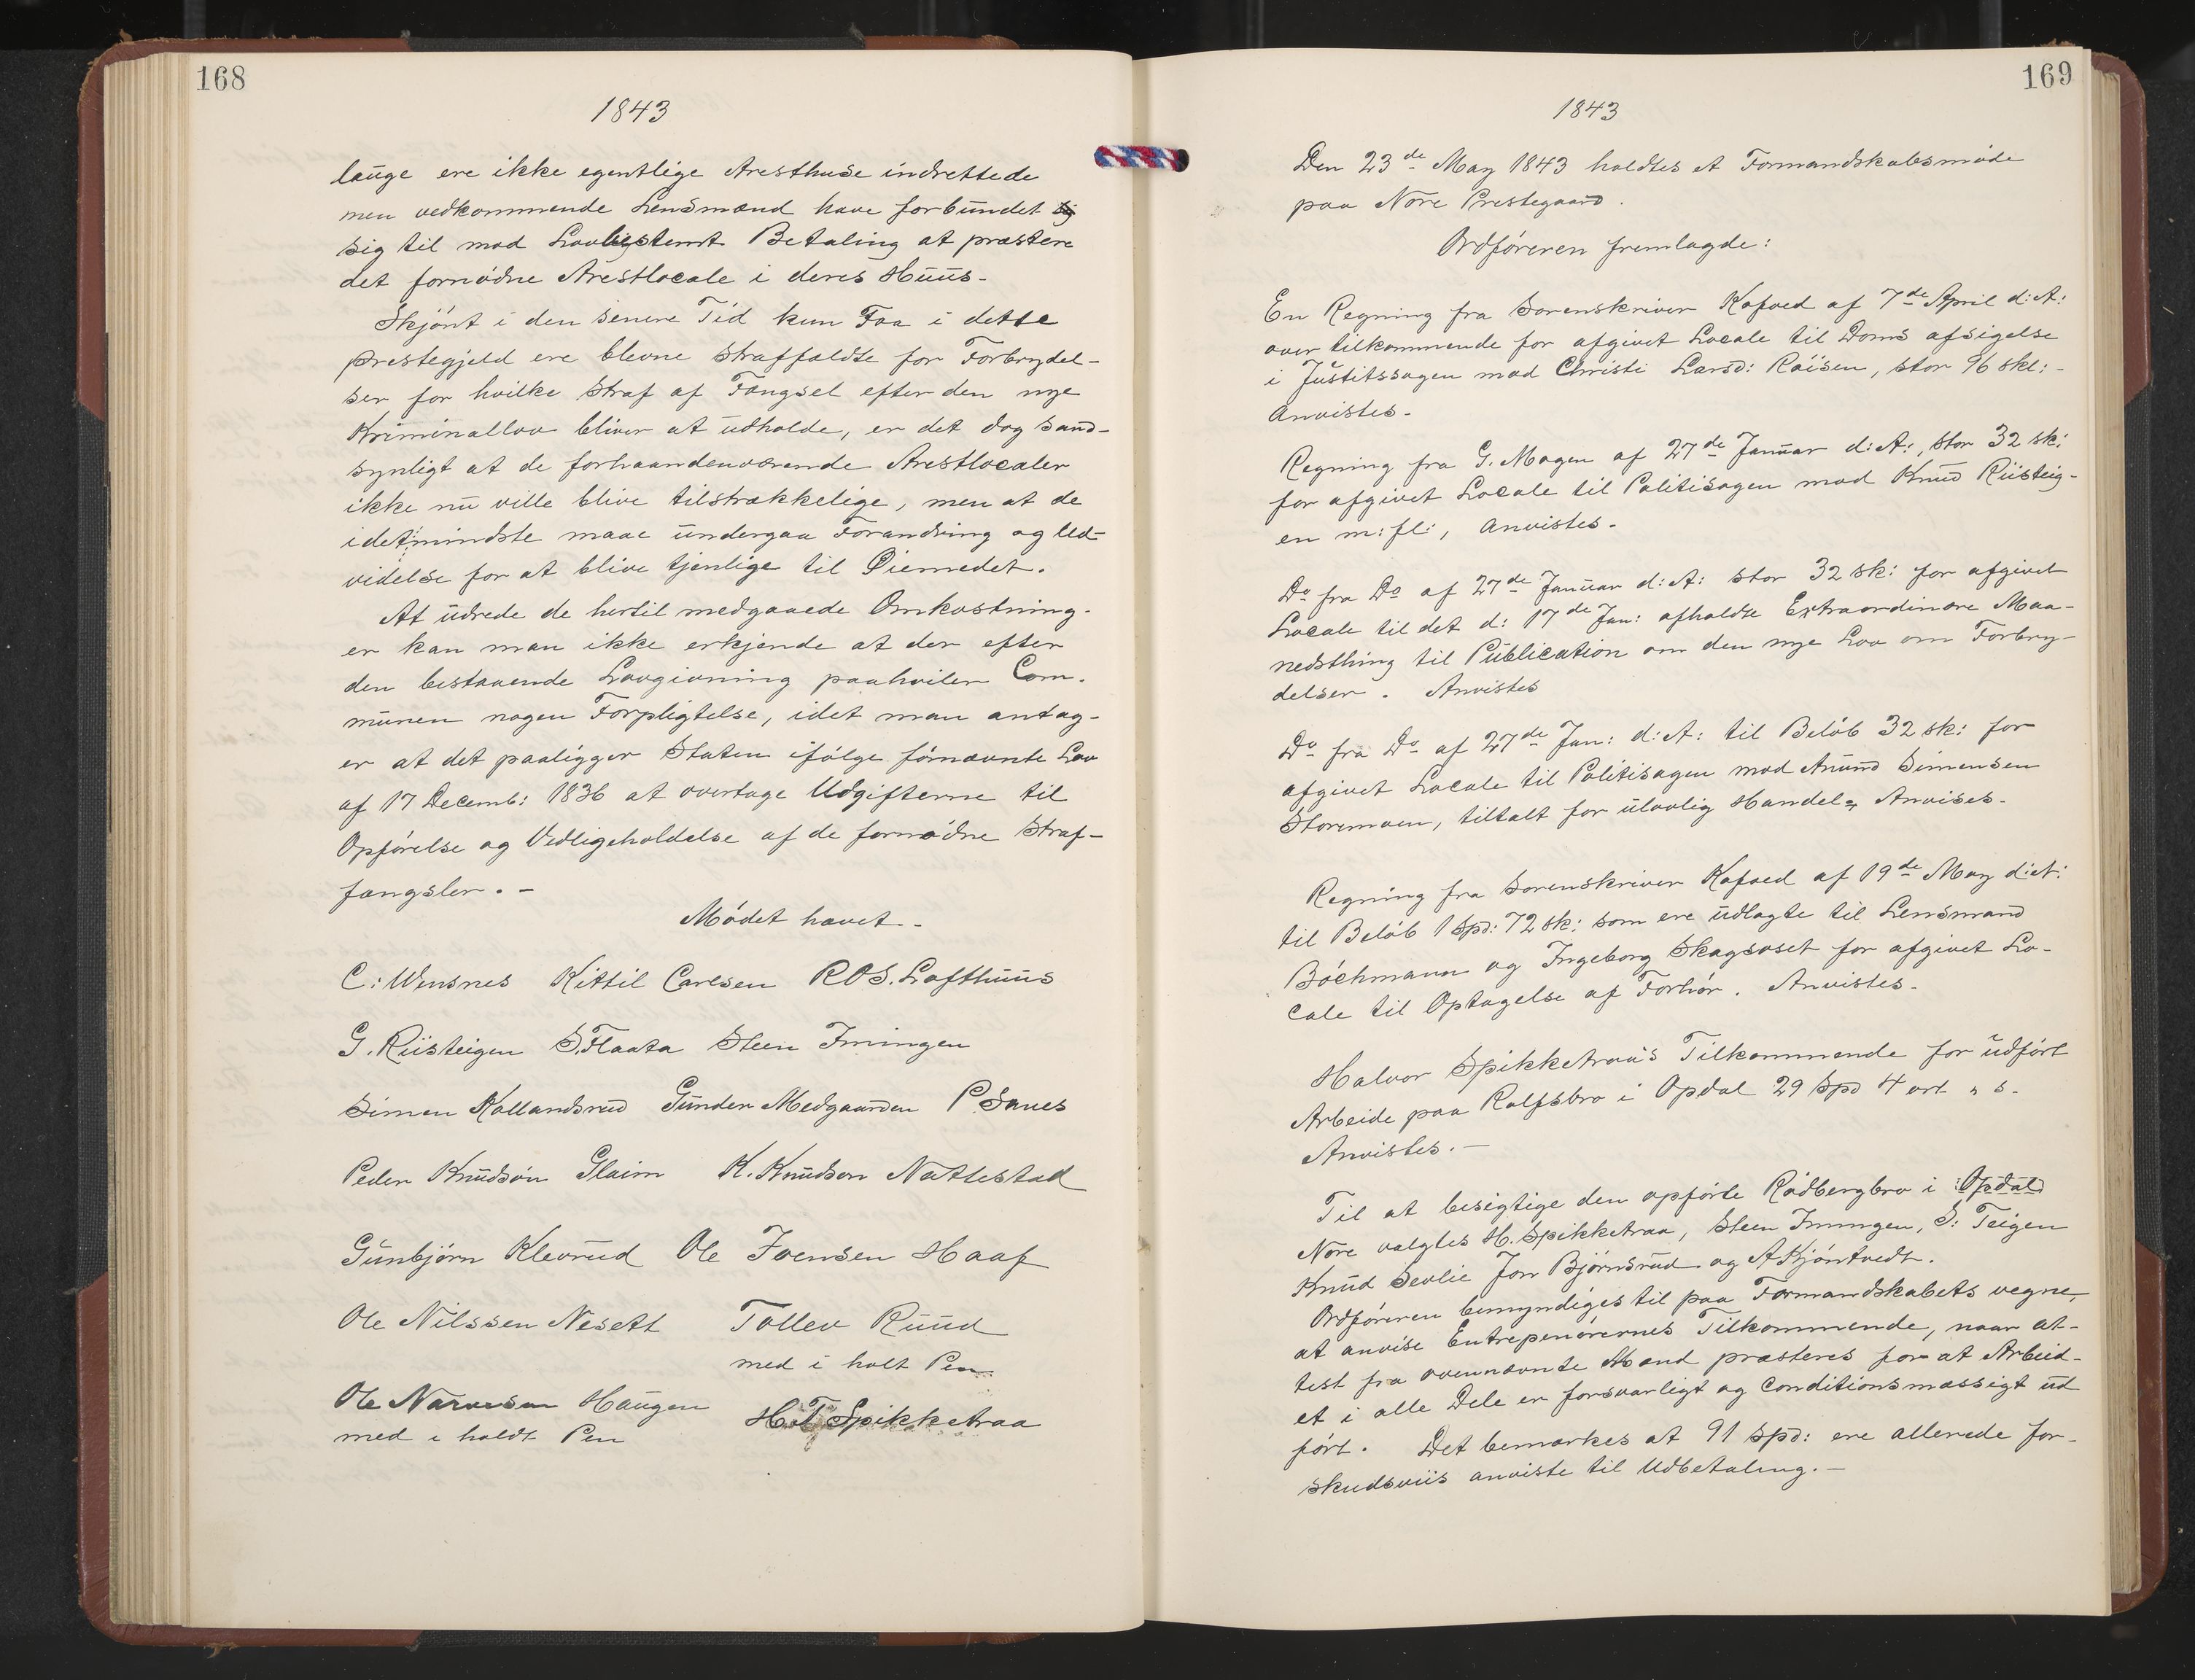 168
1843
lauge ere ikke egentlige Aresthuse indrettede
men vedkommende Lensmænd have forbundet
sig til mod Lovbestemt Betaling at præstere
det fornødne Arestlocale i deres Huus-
Skjønt i den senere Tid kun Faa i dette
Prestegjeld ere blevne straffældte for Forbrydel-
ser for hvilke Straf af Fængsel efter den nye
Kriminallov bliver at udholde, er det dog sand-
synligt at de forhaandenværende Arestlocaler
ikke nu ville blive tilstrækkelige, men at de
idetmindste maae undergaa Forandring og Ud-
videlse for at blive tjenlige til Øiemedet.
At udrede de hertil medgaaede Omkostning-
er kan man ikke erkjende at der efter
den bestaaende Lovgivning paahviler Com-
munen nogen Forpligtelse, idet man antag-
er at det paaligger Staten ifølge førnævnte Lov
af 17 Decemb: 1836 at overtage Udgifterne til
Opførelse og Vedligeholdelse af de fornødne Straf-
fængsler. -
Mødet hævet -
C: Wensnes Kittil Carlsen R O S. Lofthuus
G. Riisteigen S. Flaata Steen Imingen
Simen Kollandsrud Gunder Medgaarden P Sanes
Peder Knudsøn Glaim K. Knudson Nattestad
Gunbjørn Klevrud Ole Joensen Haaf
Ole Nilssen Nesett Tollev Ruud
med i holt Pen
Ole Narvesen Haugen H. T Spikketraa
med i holdt Pen
169
1843
Den 23de May 1843 holdtes et Formandskabsmøde
paa Nore Prestegaard.
Ordføreren fremlagde:
En Regning fra Sorenskriver Kofoed af 7de April d: A:
over tilkommende for afgivet Locale til Doms afsigelse
i Justitssagen mod Christi Larsd: Røisen, stor 96 skl: -
Anvistes -
Regning fra G. Mogen af 27de Januar d: A:, stor 32 sk:
for afgivet Locale til Politisagen mod Knud Riisteig-
en m: fl:, Anvistes -
Do fra Do af 27de Januar d: A: stor 32 sk: for afgivet
Locale til det d: 17de Jan: afholdte Extraordinære Maa-
nedsthing til Publication om den nye Lov om Forbry-
delser. Anvistes
Do fra Do af 27de Jan: d: A: til Beløb 32 sk: for
afgivet Locale til Politisagen mod Anund Simensen
Storemoen, tiltalt for ulovlig Handel, Anvises -
Regning fra Sorenskriver Kofoed af 19de May d: A:
til Beløb 1 Spd: 72 sk: som ere udlagte til Lensmand
Bøchmann og Ingeborg Skagsoset for afgivet Lo-
cale til Optagelse af Forhør. Anvistes -
Halvor Spikketraa's Tilkommende for udført
Arbeide paa Rolfsbro i Opdal 29 Spd 4 ort " s.
Anvistes. -
Til at besigtige den opførte Rødbergbro i Opdal
Nore valgtes H. Spikketraa, Steen Imingen, S: Teigen
Knud Sevlie Jon Bjørnsrud og A Kjøntvedt.
Ordføreren bemyndiges til paa Formandskabets vegne,
at anvise Entrepenørernes Tilkommende, naar at-
test fra ovennævnte Mænd præsteres for at Arbeid-
et i alle Dele er forsvarligt og Conditionsmæssigt ud
ført. Det bemærkes at 91 Spd: ere allerede for-
skudsviis anviste til Udbetaling. -